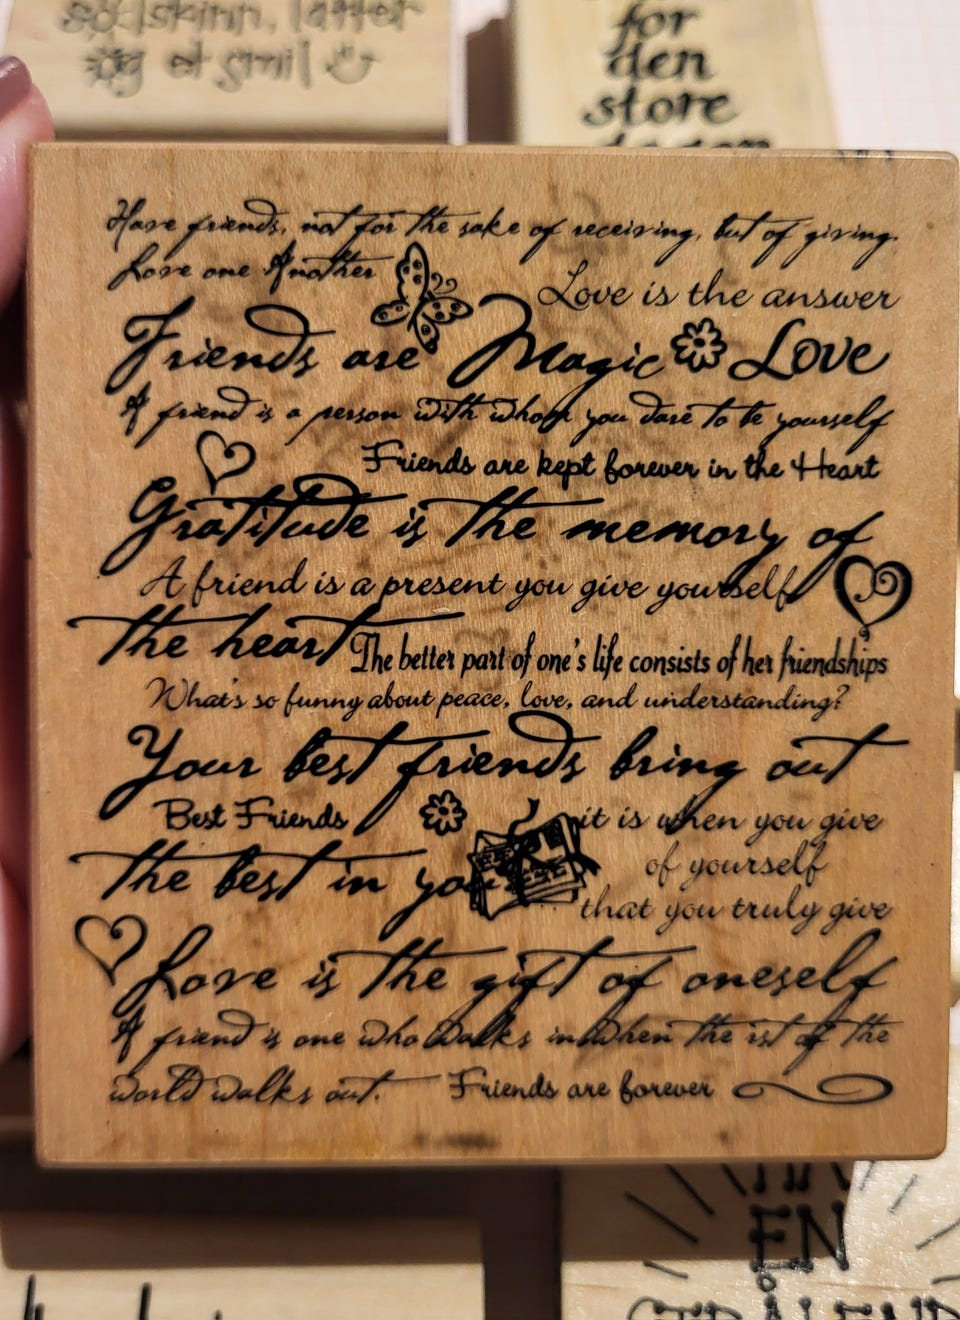 solskinn, latter
og et smil
for
den
store
dagen
Have friends, not for the sake of receiving, but of giving.
Love one Another
Love is the answer
Friends are Magic Love
A friend is a person with whom you dare to be yourself
Friends are kept forever in the Heart
Gratitude is the memory of
A friend is a present you give yourself
the heart The better part of one's life consists of her friendships
What's so funny about peace, love, and understanding?
Your best friends bring out
Best Friends it is when you give
the best in you of yourself
that you truly give
Love is the gift of oneself
A friend is one who walks in When the ist of the
world walks out. Friends are forever
EN